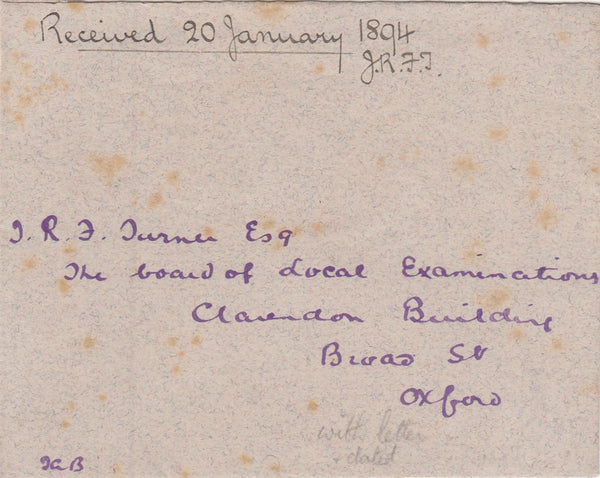 Received 20 January 1894
J.R.F.T.
J. R. F. Turner Esq
The board of Local Examinations
Clarendon Building
Broad St
Oxford
with letter
+ dated